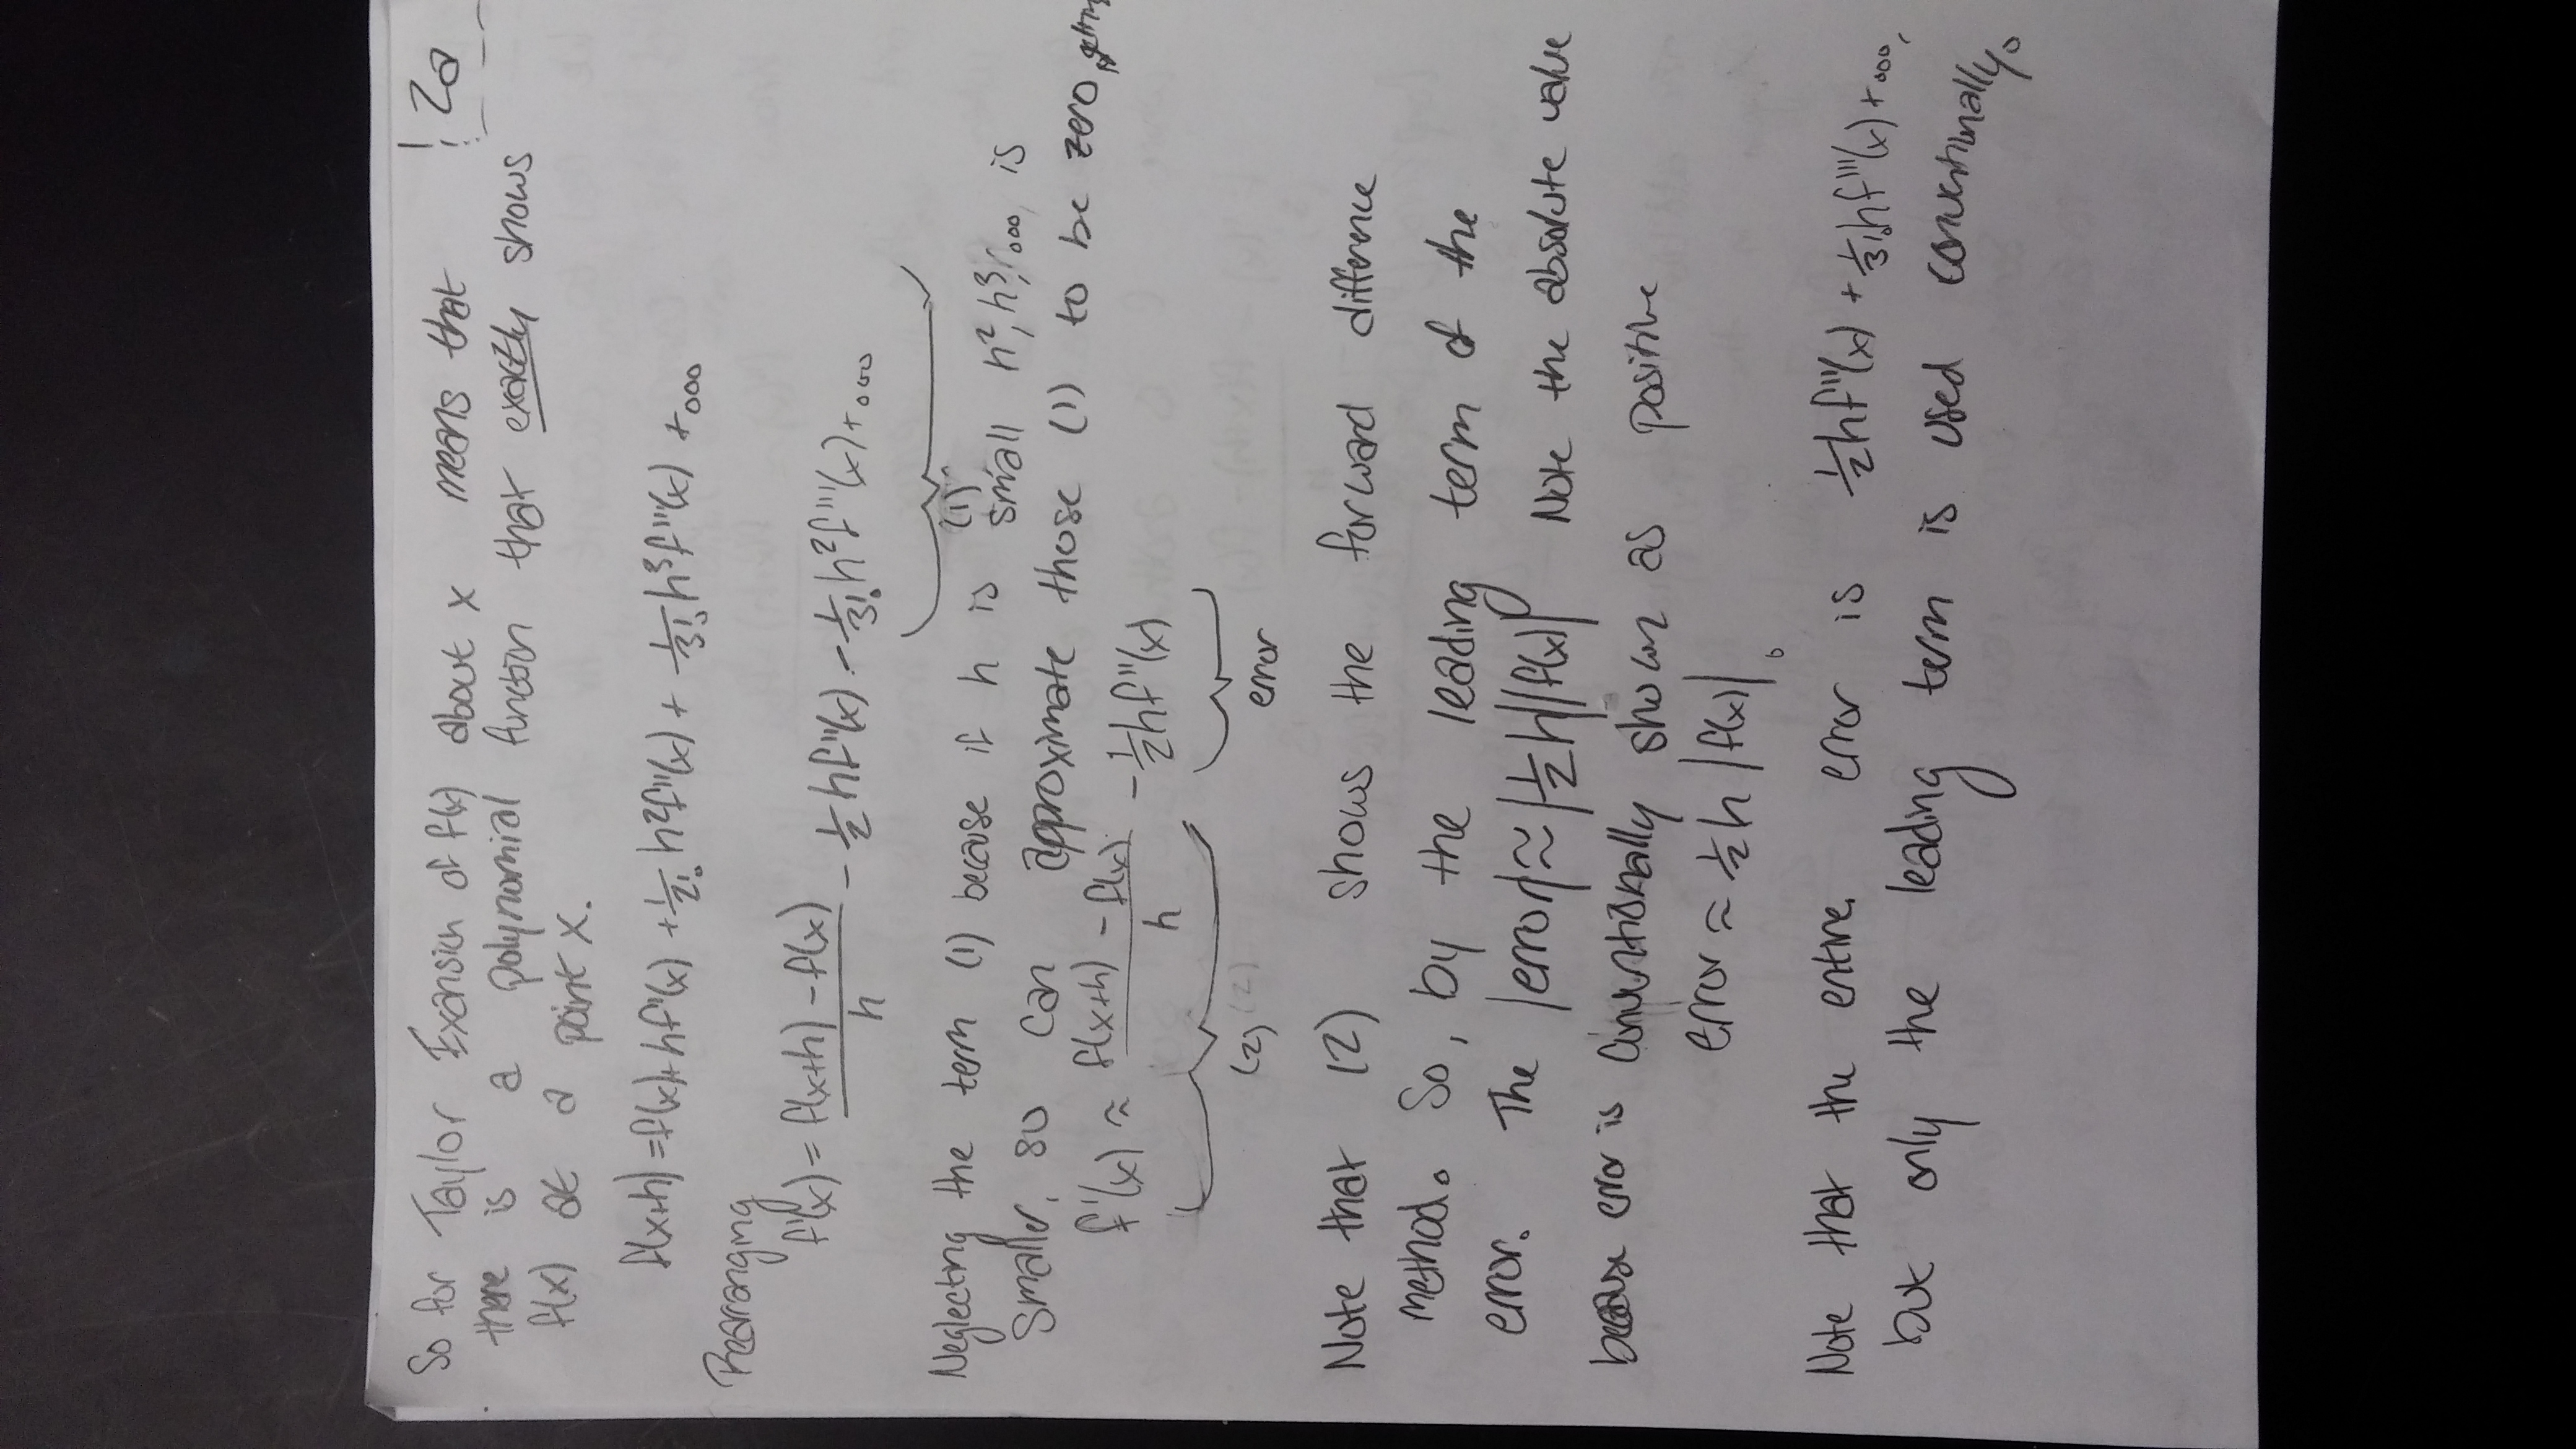 2a
So for Taylor Exansion of f(x) about x means that
there is a polynomial function that exactly shows
f(x) at a point x.
f(x+h)=f(x)+hf'(x)+1/2! h²f''(x)+1/3! h³f'''(x)+...
Rearranging
f'(x)=f(x+h)-f(x)/h - 1/2 hf''(x) - 1/3! h²f'''(x)+...
(1)
Neglecting the term (1) because if h is small h²,h³,..., is
smaller, so can approximate those (1) to be zero,
f'(x) ≈ f(x+h)-f(x)/h - 1/2 hf''(x)
(2) error
Note that (2) shows the forward difference
method. So, by the leading term of the
error. The |error|≈|1/2 h||f(x)| Note the absolute value
because error is conventionally shown as positive
error ≈ 1/2 h |f(x)|.
Note that the entire error is 1/2 hf''(x) + 1/3! hf'''(x)+...,
but only the leading term is used conventionally.